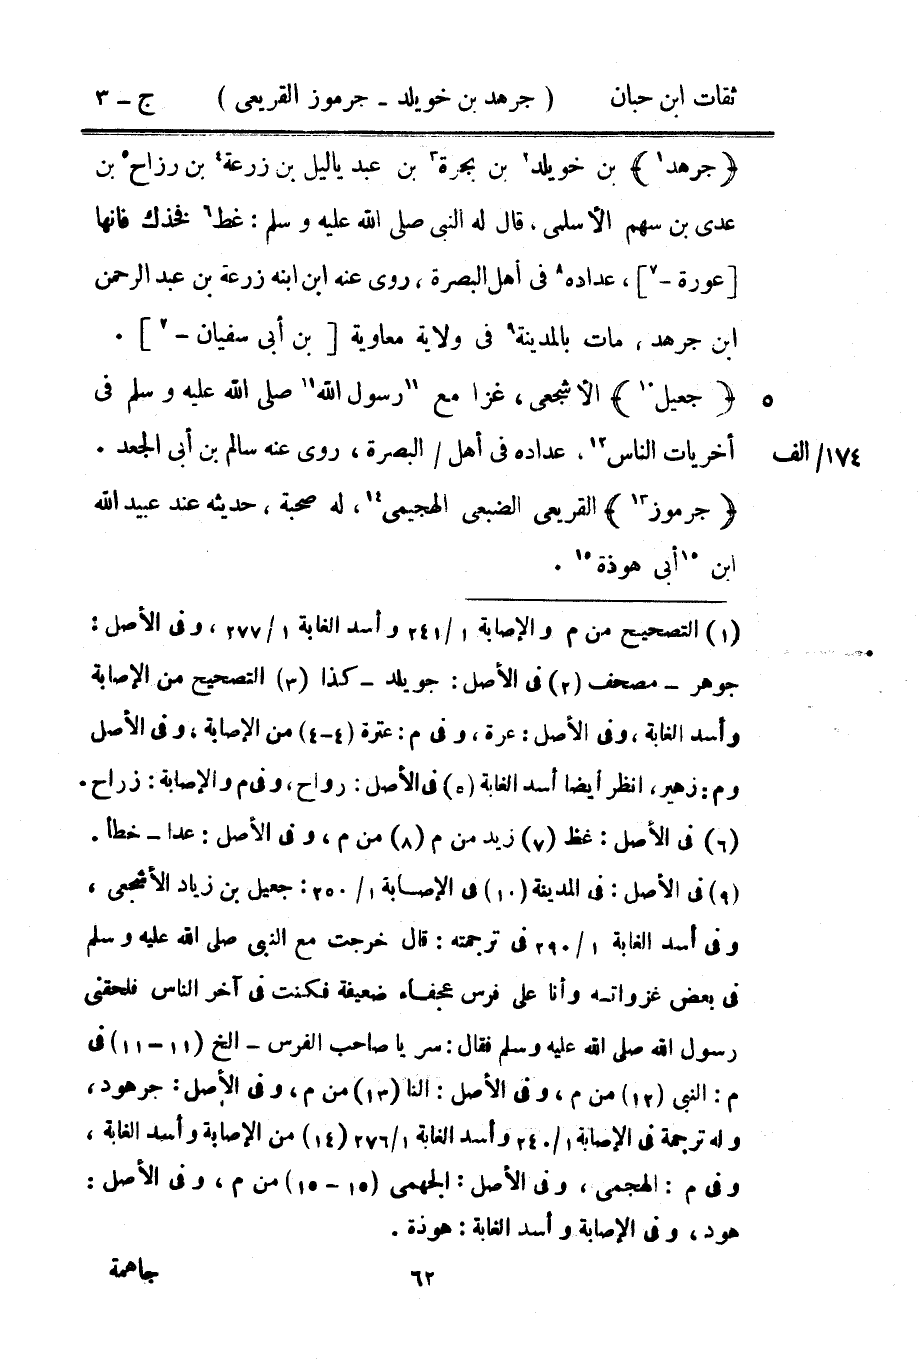 ثقات ابن حبان ( جرهد بن خويلد - جرموز القريعى ) ج - ٣
﴿ جرهد١ ﴾ بن خويلد٢ بن بجرة٣ بن عبد ياليل بن زرعة٤ بن رزاح٥ بن
عدى بن سهم الأسلمى ، قال له النبى صلى الله عليه و سلم : غط٦ فخذك فانها
[ عورة -٧ ] ، عداده٨ فى أهل البصرة ، روى عنه ابن ابنه زرعة بن عبد الرحمن
ابن جرهد ، مات بالمدينة٩ فى ولاية معاوية [ بن أبى سفيان -٧ ] .
٥ ﴿ جعيل١٠ ﴾ الأشجعى ، غزا مع ١١رسول الله١١ صلى الله عليه و سلم فى
١٧٤/ الف أخريات الناس١٢ ، عداده فى أهل / البصرة ، روى عنه سالم بن أبى الجعد .
﴿ جرموز١٣ ﴾ القريعى الضبعى الهجيمى١٤ ، له صحبة ، حديثه عند عبيد الله
ابن ١٥أبى هوذة١٥ .
(١) التصحيح من م و الإصابة ١/ ٢٤١ و أسد الغابة ١/ ٢٧٧ ، و فى الأصل :
جوهر - مصحف (٢) فى الأصل : جويلد - كذا (٣) التصحيح من الإصابة
و أسد الغابة ، و فى الأصل : عرة ، و فى م : عترة (٤-٤) من الإصابة ، و فى الأصل
و م : زهير ، انظر أيضا أسد الغابة (٥) فى الأصل : رواح ، و فى م و الإصابة : زراح .
(٦) فى الأصل : غظ (٧) زيد من م (٨) من م ، و فى الأصل : عدا - خطأ .
(٩) فى الأصل : فى المدينة (١٠) فى الإصابة ١/ ٢٥٠ : جعيل بن زياد الأشجعى ،
و فى أسد الغابة ١/ ٢٩٠ فى ترجمته : قال خرجت مع النبى صلى الله عليه و سلم
فى بعض غزواته وأنا على فرس عجفاء ضعيفة فكنت فى آخر الناس فلحقنى
رسول الله صلى الله عليه وسلم فقال : سر يا صاحب الفرس - الخ (١١-١١) فى
م : النبى (١٢) من م ، و فى الأصل : النا (١٣) من م ، و فى الأصل : جرهود ،
و له ترجمة فى الإصابة ١/ ٢٤٠ و أسد الغابة ١/ ٢٧٦ (١٤) من الإصابة و أسد الغابة ،
و فى م : الهجمى ، و فى الأصل : الجهمى (١٥-١٥) من م ، و فى الأصل :
هود ، و فى الإصابة و أسد الغابة : هوذة .
٦٢ جاهمة